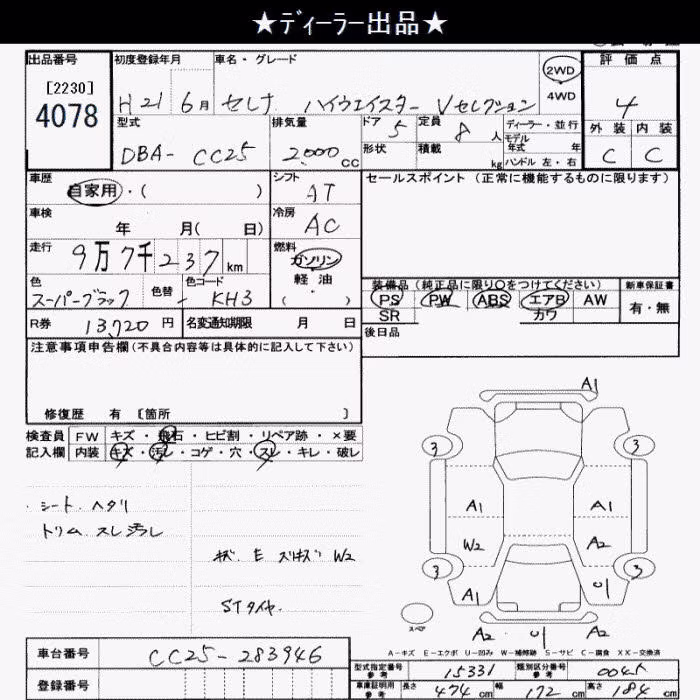 ★ディーラー出品★
出品番号 初度登録年月 車名・グレード 評価点
[2230]
4078
H21 6月 セレナ ハイウェイスター Vセレクション 2WD 4WD 4
型式 排気量 ドア 5 定員 8 人 ディーラー・並行 外装 内装
DBA- CC25 2,000 cc 形状 積載 kg モデル年式 年 ハンドル 左・右 C C
車歴 シフト セールスポイント (正常に機能するものに限ります)
自家用・( ) AT
車検 冷房
年 月( 日) AC
走行 燃料
9万7千237 km ガソリン
軽油
色 色替 色コード ( )
スーパーブラック - KH3
装備品 (純正品に限り○をつけてください) 新車保証書
PS PW ABS エアB AW 有・無
SR カワ
R券 13,720 円 名変通知期限 月 日 後日品
注意事項申告欄(不具合内容等は具体的に記入して下さい)
修復歴 有 [箇所 ]
検査員 FW キズ・飛石・ヒビ割・リペア跡・×要
記入欄 内装 キズ・汚レ・コゲ・穴・スレ・キレ・破レ
・シート ヘタリ
トリム スレ汚レ
キズ E スリキズ W2
STタイヤ.
A1
3 3
A1 A1
W2 A2
3 3
A1 U1
スペア
A2 U1 A2
A-キズ E-エクボ U-凹み W-補修跡 S-サビ C-腐食 XX-交換済
車台番号 CC25-283946
登録番号
型式指定番号 参考 15331 類別区分番号 参考 0045
車庫証明用 参考 長さ 474 cm 幅 172 cm 高さ 184 cm